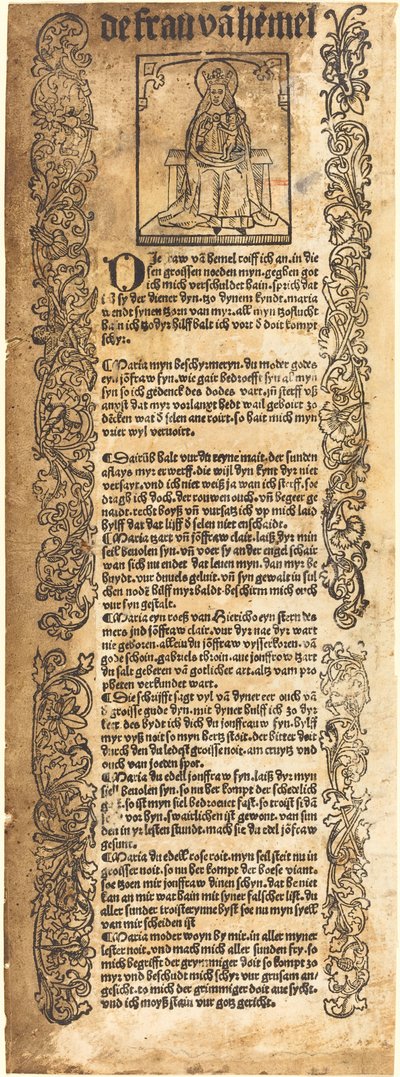 de frau vā hēmel
O Je fraw vā hemel roiff ich an. in die
sen groissen noeden myn. gegben got
ich mich verschuldet hain. sprich dat
ich sy der diener dyn. tzo dynem kyndt. maria
wendt synen tzorn van myr. all myn tzoflucht
hain ich tzo dyr hilff balt ich vort d doit kompt
schyr.
¶ Maria myn beschyrmeryn. du moder godes
eyn jōfraw fyn. wie gait bedroefft syn al myn
syn so ich gedenck des dodes vart. jn sterff vß
anxst dat myr vorlanxt hedt wail geboirt zo
decken wat d selen ane roirt. so hait mich myn
vriet wyl vervoirt.
¶ Dairūb halt vur du reyne mait. der sunden
aflays myr erwerff. die wijl dyn kynt dyr niet
versayt. vnd ich niet weiß ja wan ich sterff. soe
dragh ich doch. der rouwen ouch. vn begeer ge
naidt. recht boyß vn vursatz ich vp mich laid
hylff dat dat lijff d selen niet enschaidt.
¶ Maria tzart vn jōffraw clair. laiß dyr min
seil bevolen syn. vn voer sy an der engel schair
wan sich nu endet dat leuen myn. dan myr be
huydt. vur duuels geluit. vn syn gewalt in sul
chen nodē hilff myr baldt. beschirm mich ouch
vur syn gestalt.
¶ Maria eyn roeß van Hiericho eyn stern des
mers jnd jōffraw clair. vur dyr nae dyr wart
nie geboren. alleiu du jōffraw vysserkoren. vā
gode schoin. gabriels throin. aue jonffrow tzart
du salt geberen vā gotlicher art. altz vam pro
pheten verkundet wart.
¶ Die schrifft sagt vyl vā dyner eer ouch vā
d groisse gude dyn. mit dyner hulff ich zo dyr
ker. des bydt ich dich du jonffrauw fyn. hylff
myr vyß noit so myn hertz stoit. der bitter doit
durch den du ledest groisse noit. am cruytz vnd
ouch van joeden spot.
¶ Maria du edell jonffraw fyn. laiß dyr myn
siell bevolen syn. so nu her kompt der schedlich
so ist myn siel bedroeuet fast. so troist si dā
vor hyn. swairlichen ist gewont. van sun
den in yr lesten stundt. mach sie du edel jōfraw
gesunt.
¶ Maria du edell rose roit. myn seil steit nu in
groisser noit. so nu her kompt der boese viant.
soe tzoen mir jonffraw dinen schyn. dat he niet
kan an mir wat hain mit syner falscher list. du
aller sunder troisterynne byst soe nu myn syell
van mir scheiden ist
¶ Maria moder woyn by mir. in aller myner
lester noit. vnd mach mich aller sunden fry. so
mich begrifft der grymmiger doit so kompt zo
myr vnd beschudt mich schyr vur grusam an/
gesicht. to mich der grimmiger doit ane sycht.
vnd ich moyß stain vur gotz gericht.